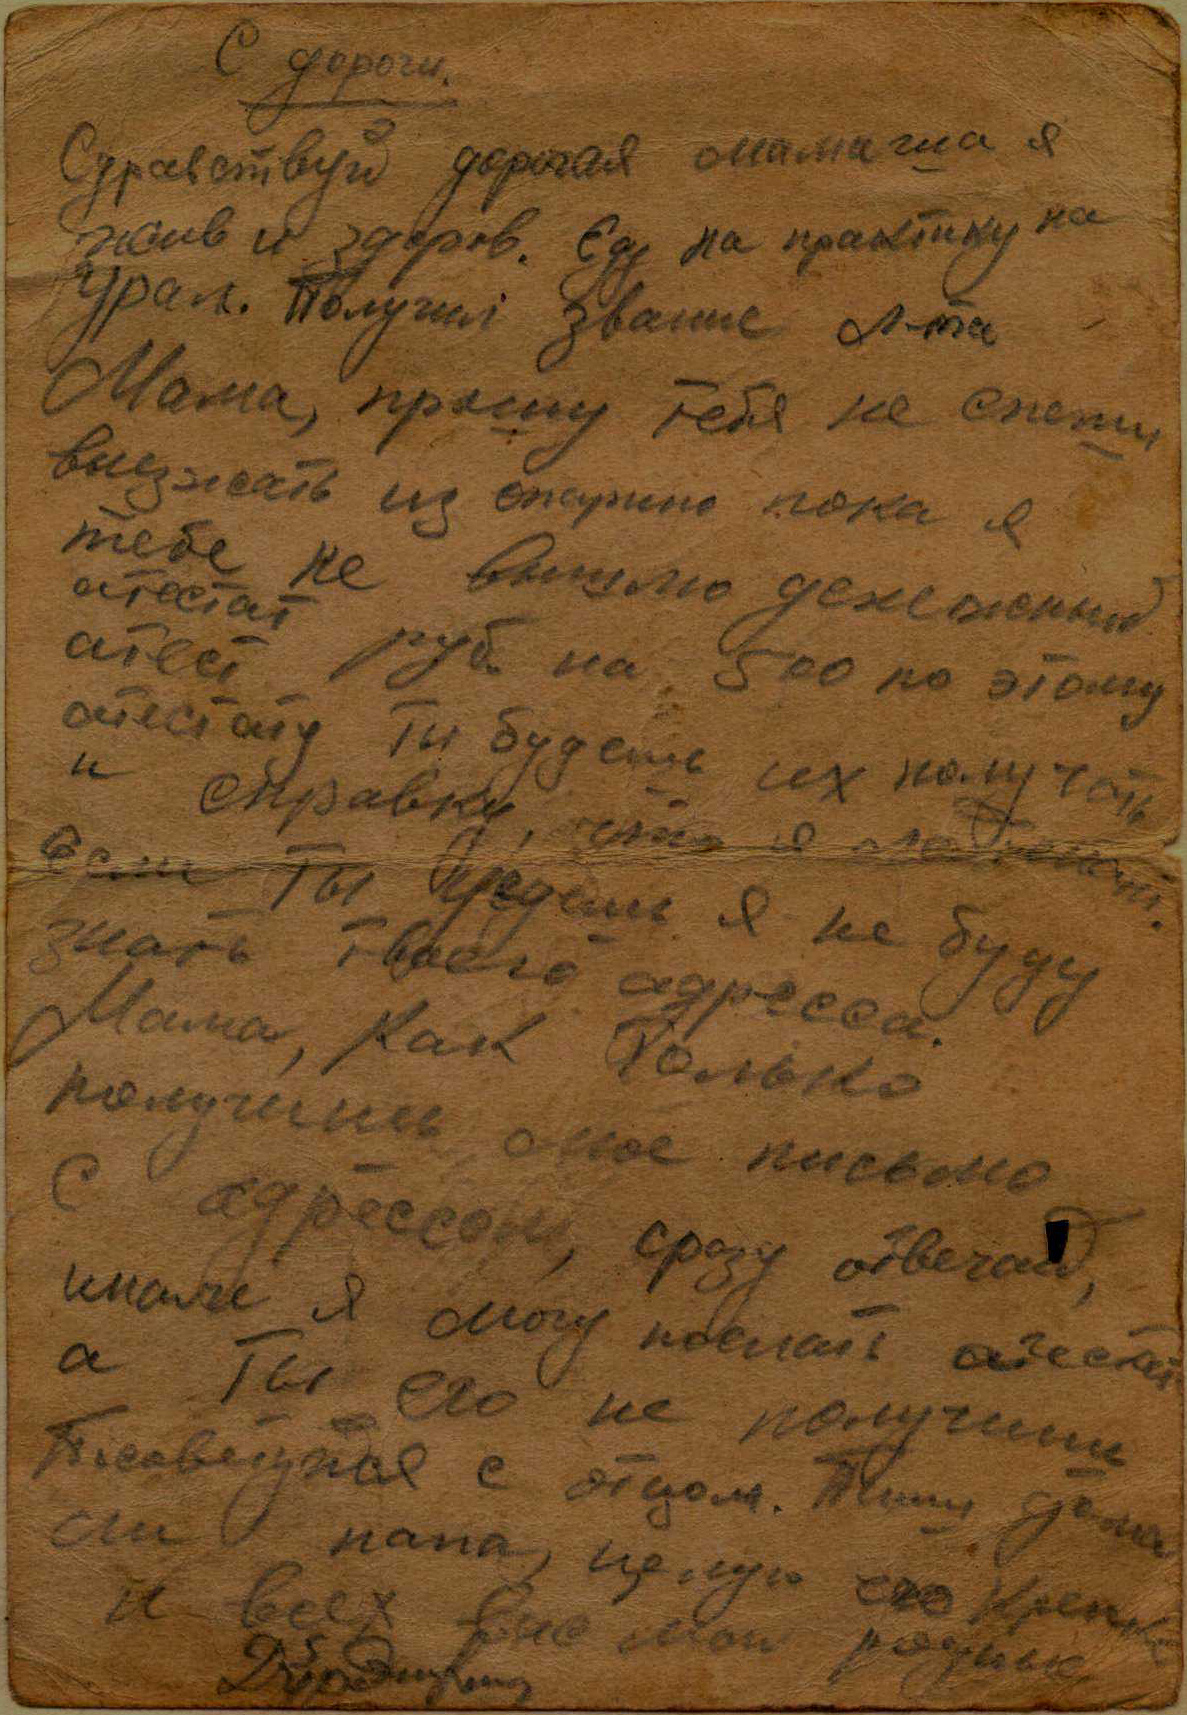 С дороги.
Сдравствуй дорогая мамаша я
жив и здоров. Еду на практику на
Урал. Получил звание л-та
Мама, прошу тебя не спеши
выезжать из пока я
тебе не вышлю денежный
атестат
атест руб. на 500 по этому
атестату ты будешь их получать
и справку, что я
Если ты уедешь я не буду
знать твоего адресса.
Мама, как только
получишь мое письмо
с адрессом, сразу отвечай,
иначе я могу послать атестат
а ты его не получишь
Посоветуйся с отцом. Пишу дома
ли папа, целую его крепко
и всех Вас мои родные